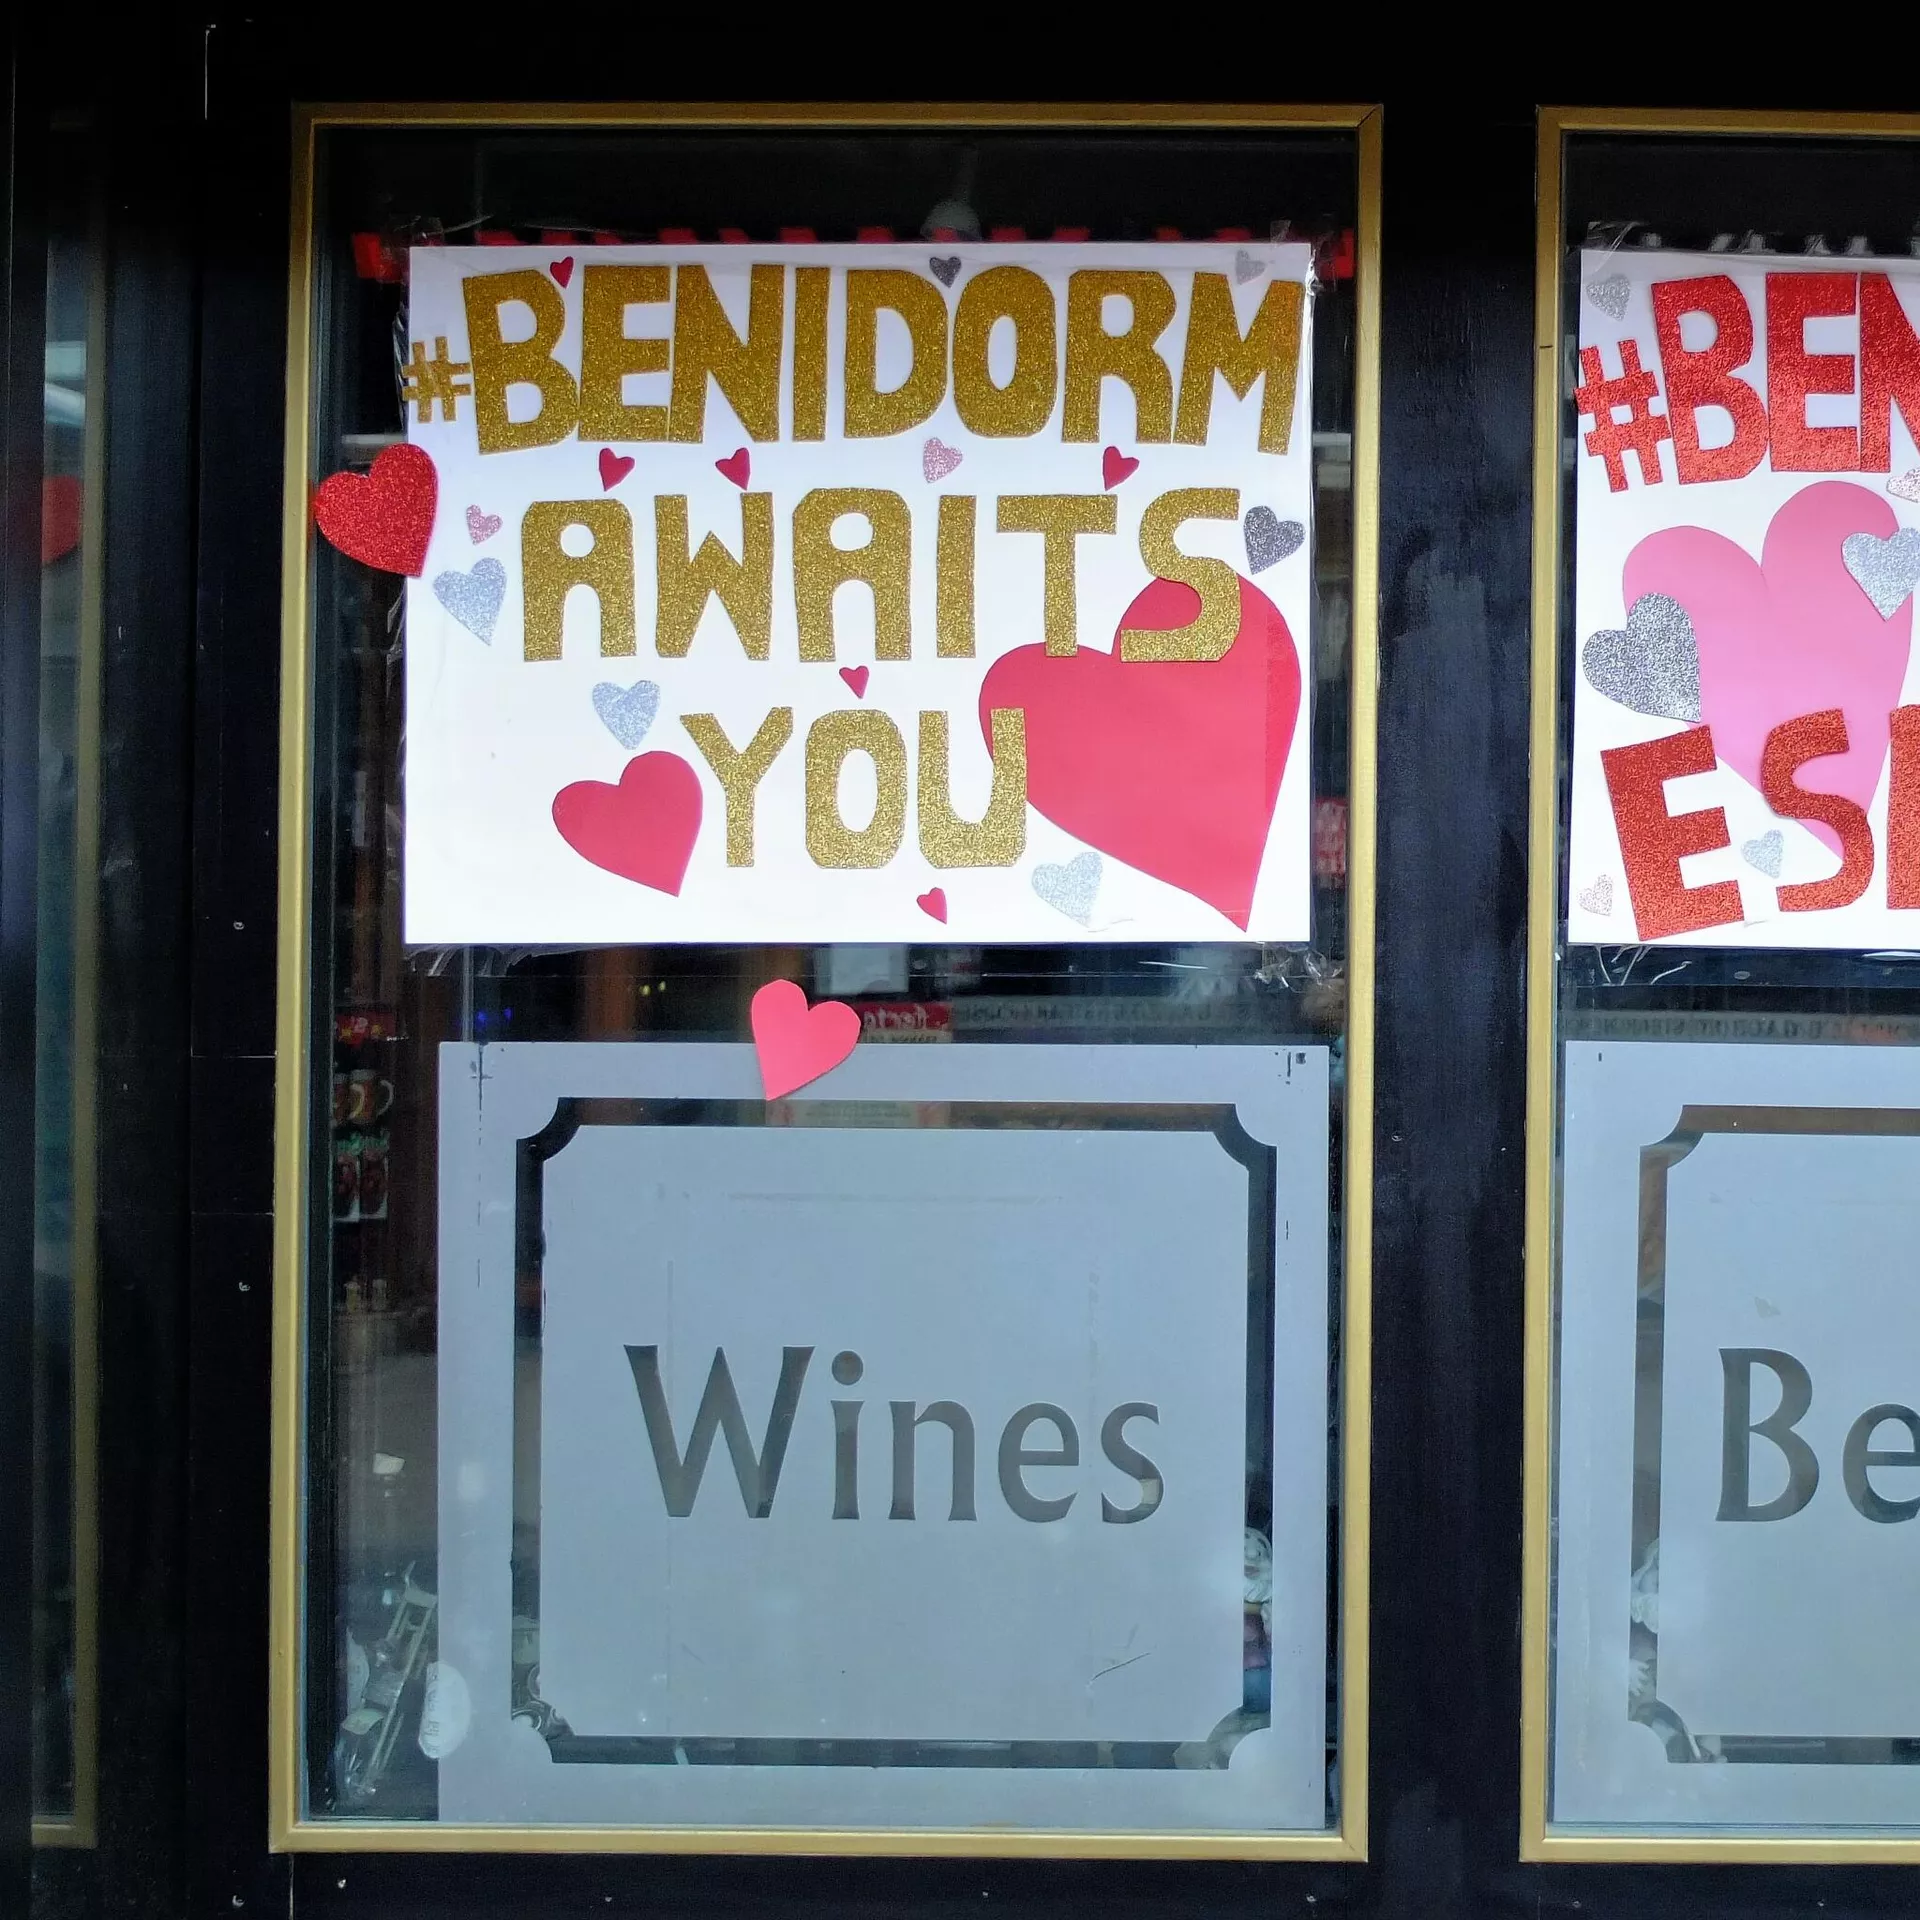 #BENIDORM
AWAITS
YOU
Wines
#BEN
ES
Be